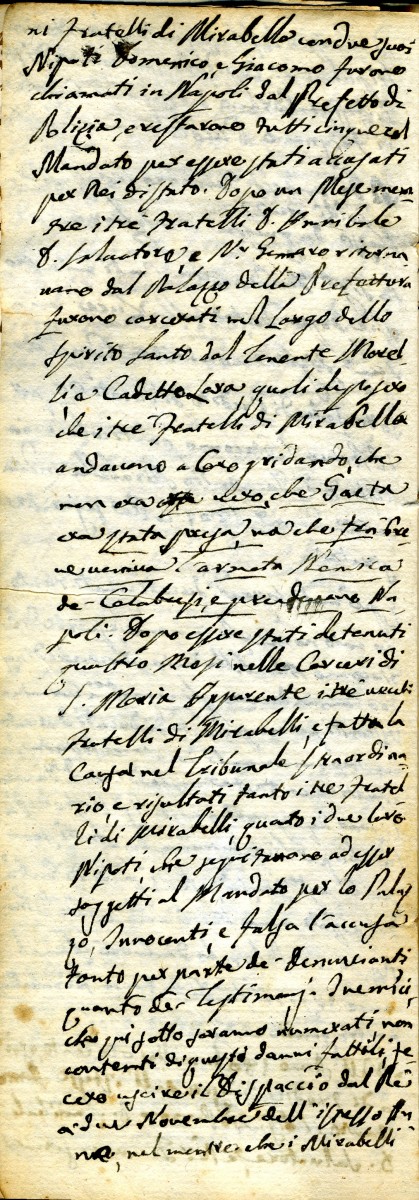 ni Fratelli di Mirabello con due suoi
Nipoti Domenico, e Giacomo furono
chiamati in Napoli dal Prefetto di
Polizia, e restarono tutti cinque col
Mandato per essere stati accusati
per Rei di stato. Dopo un Mese men
tre i tré Fratelli D. Annibale
D. Salvatore, e Nr. Gennaro ritorna
vano dal Palazzo della Prefettura
furono carcerati nel Largo dello
Spirito Santo dal Tenente Morel
li e Cadetto Lara, quali deposero
che i tré Fratelli di Mirabello
andavano a Coro gridando, che
non era vero, che Gaeta
era stata presa, ma che frà bre
ve veniva l'armata Nemica
de- Calabresi, e prendevano Na
poli. Dopo essere stati detenuti
quattro Mesi nelle Carceri di
S. Maria Apparente i tré
Fratelli di Mirabelli, e fatta la
Causa nel Tribunale Straordina
rio, e risultati tanto i tre Fratel
li di Mirabelli, quanto i due loro
Nipoti che seguitarono ad esser
soggetti al Mandato per lo Palaz
zo, Innocenti, e falsa l'accusa
tanto per parte de- Denuncianti
quanto de- Testimonj. Inemici,
che qui sotto saranno numerati non
contenti di questi danni fattili, fe
cero uscire il Dispaccio dal Rè
a due Novembre dell'istesso An
no, nel mentre che i Mirabelli